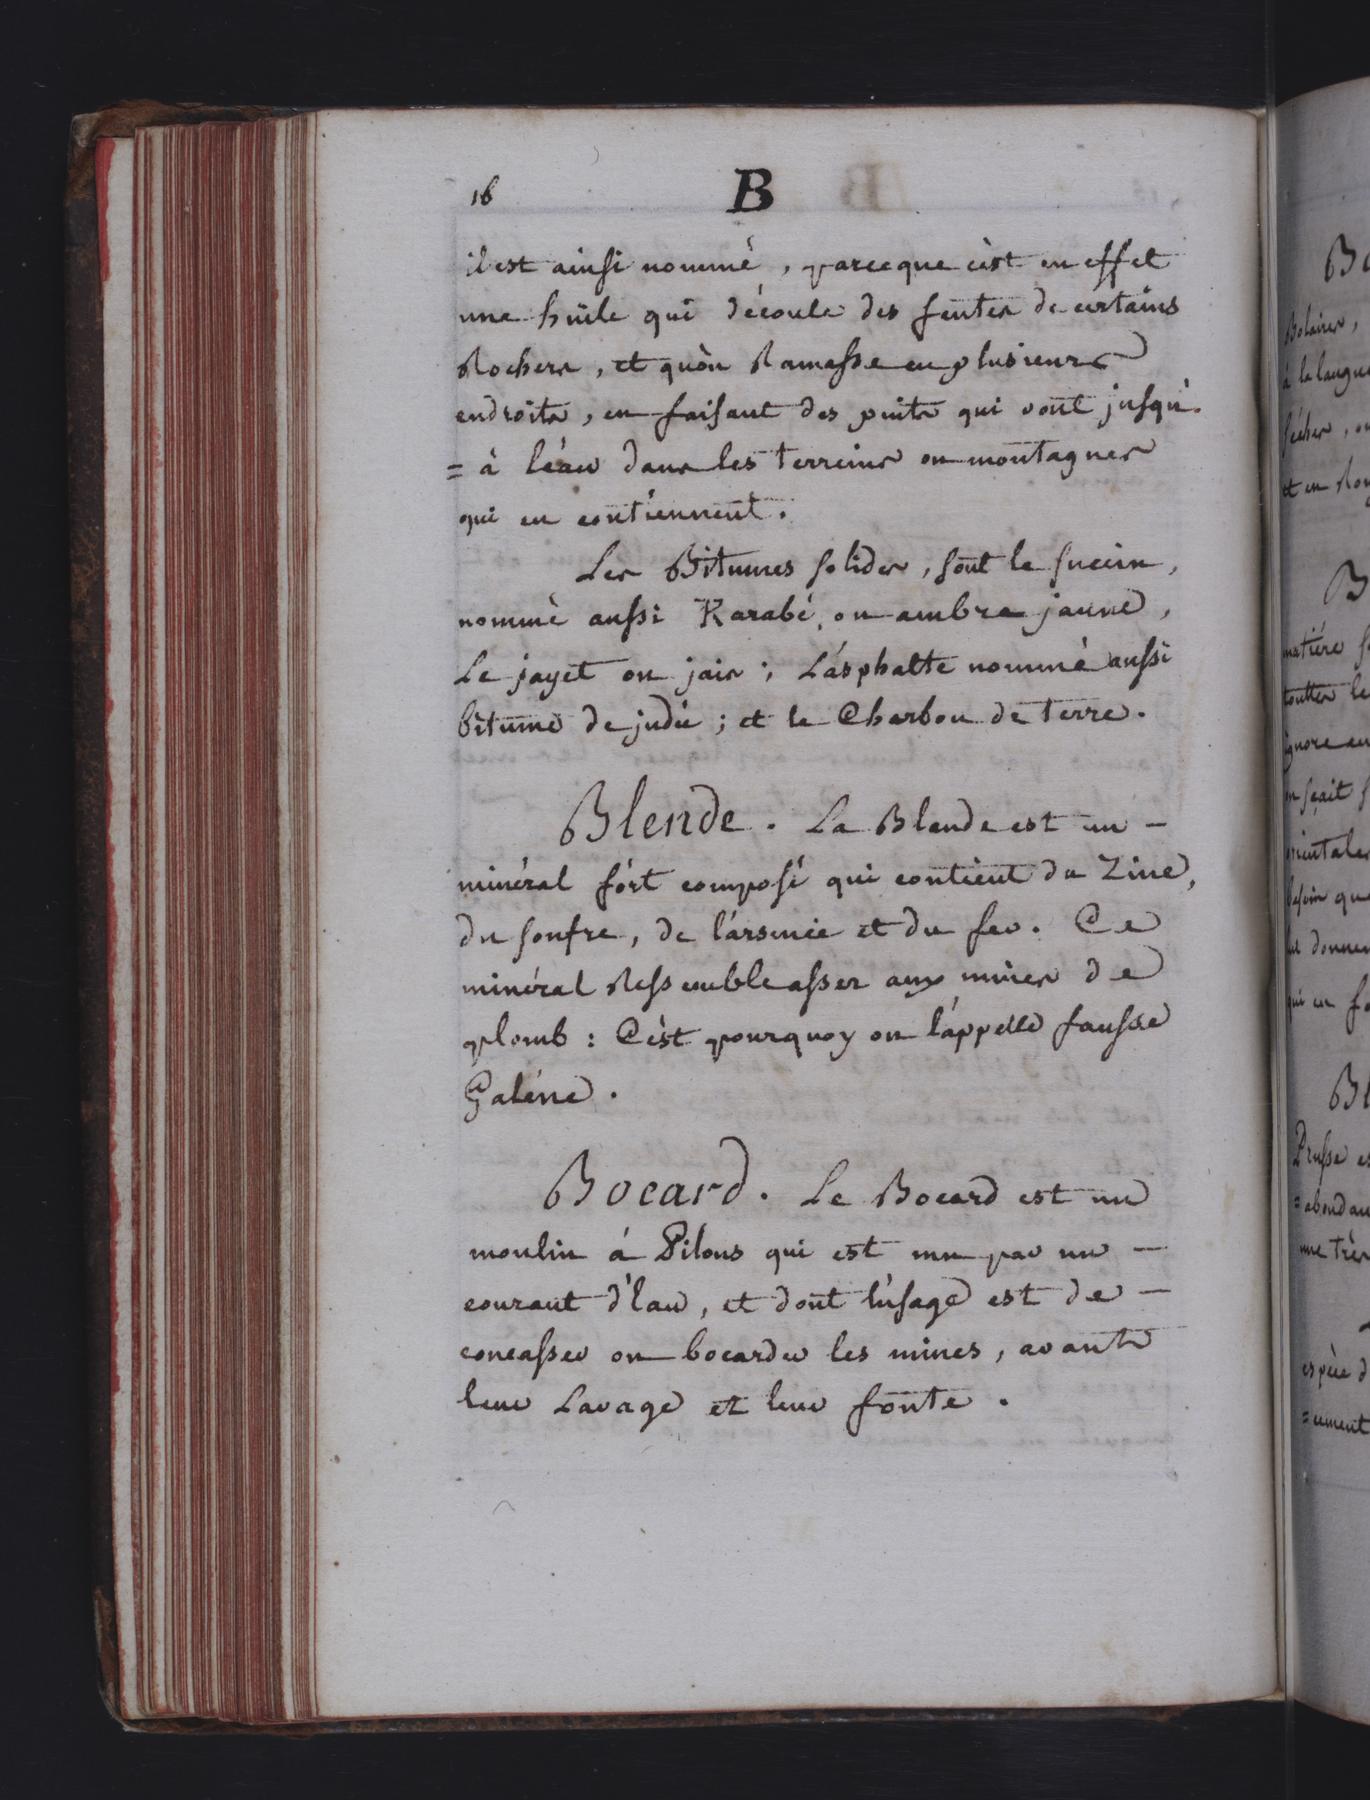 16
B
il est ainsi nommé, parceque cèst en effet
une huile qui découle des fentes de certains
Rochers, et quòn Ramasse en plusieurs
endroits, en faisant des puits qui vont jusqu'-
= à léau dans les terreins ou montagnes
qui en contiennent.
Les Bitumes solides, sont le succin,
nommé aussi Karabé, ou ambre jaune,
Le jayet ou jais; L'asphalte nommé aussi
bitume de judée; et le Charbon de terre.
Blende. La Blende est un -
minéral fort composé qui contient du Zinc,
du soufre, de l'arsenic et du fer. Ce
minéral Ressemble assez aux mines de
plomb: C'èst pourquoy on l'appelle fausse
Galéne.
Bocard. Le Bocard est un
moulin á Pilons qui est mu par un -
courant d'eau, et dont l'usage est de -
concasser ou bocarder les mines, avant
leur Lavage et leur fonte.
Bolaires,
à la langue
sécher, ou
matiére
toutes le
ignore en
on sçait
orientales
besoin que
donnen
qui en
Bl
Prusse es
= abondan
une très
espèce d
= cement